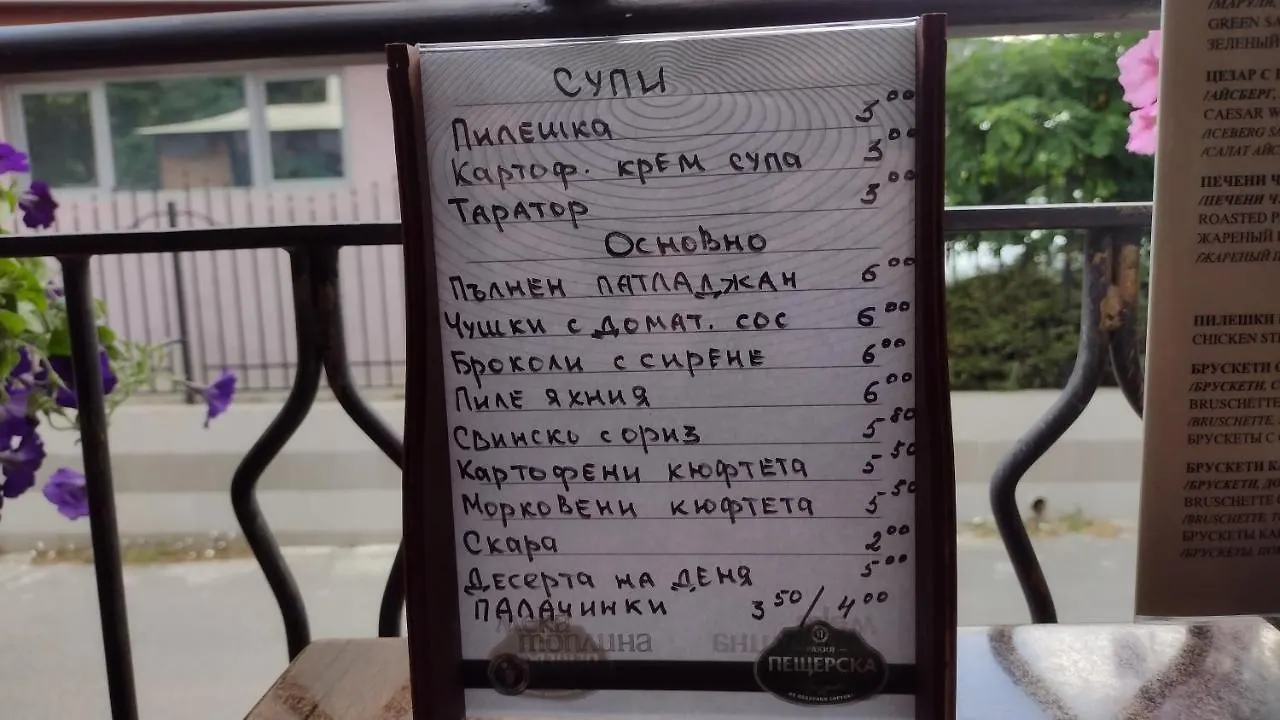 СУПИ
ПИЛЕШКА 3 00
КАРТОФ. КРЕМ СУПА 3 00
ТАРАТОР 3 00
ОСНОВНО
ПЪЛНЕН ПАТЛАДЖАН 6 00
ЧУШКИ С ДОМАТ. СОС 6 00
БРОКОЛИ С СИРЕНЕ 6 00
ПИЛЕ ЯХНИЯ 6 00
СВИНСКО С ОРИЗ 5 80
КАРТОФЕНИ КЮФТЕТА 5 50
МОРКОВЕНИ КЮФТЕТА 5 50
СКАРА 2 00
ДЕСЕРТА НА ДЕНЯ 5 00
ПАЛАЧИНКИ 3 50 / 4 00
топлина
РАКИЯ
ПЕЩЕРСКА
/МАРУЛЯ,
GREEN SA
ЗЕЛЕНЫЙ
ЦЕЗАР С
/АЙСБЕРГ,
CAESAR W
/ICEBERG S
/САЛАТ АЙС
ПЕЧЕНИ Ч
/ПЕЧЕНИ Ч
ROASTED
ЖАРЕНЫЙ
/ЖАРЕНЫЙ
ПИЛЕШКИ
CHICKEN ST
БРУСКЕТИ
/БРУСКЕТИ, С
BRUSCHETTE
/BRUSCHETTE,
БРУСКЕТЫ С
БРУСКЕТИ КА
/БРУСКЕТИ, ДО
BRUSCHETTE
/BRUSCHETTE, T
БРУСКЕТЫ КА
/БРУСКЕТЫ, ПО